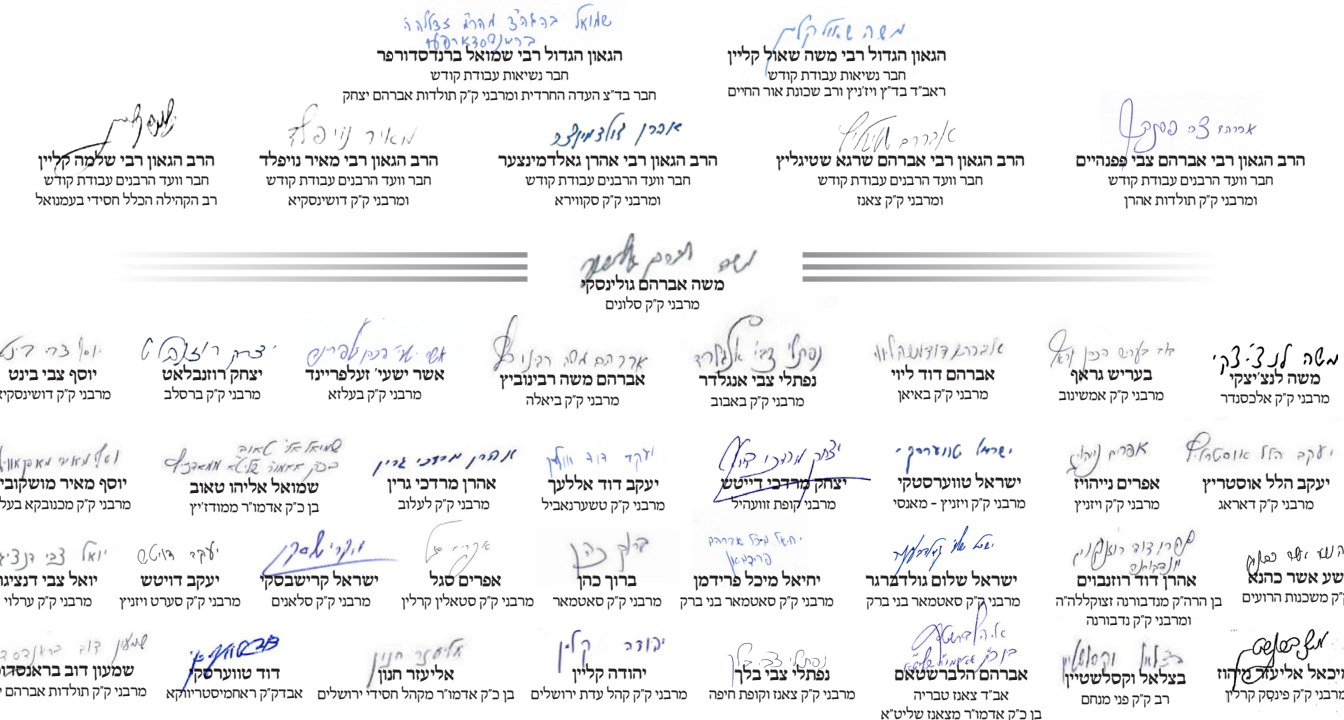 משה שאול קליין
הגאון הגדול רבי משה שאול קליין
חבר נשיאות עבודת קודש
ראב"ד בד"ץ ויז'ניץ ורב שכונת אור החיים
הגאון הגדול רבי שמואל ברנדסדורפר
חבר נשיאות עבודת קודש
חבר בד"צ העדה החרדית ומרבני ק"ק תולדות אברהם יצחק
הרב הגאון רבי אברהם צבי פפנהיים
חבר וועד הרבנים עבודת קודש
ומרבני ק"ק תולדות אהרן
הרב הגאון רבי אברהם שרגא שטיגליץ
חבר וועד הרבנים עבודת קודש
ומרבני ק"ק צאנז
הרב הגאון רבי אהרן גאלדמינצער
חבר וועד הרבנים עבודת קודש
ומרבני ק"ק סקווירא
מאיר נויפלד
הרב הגאון רבי מאיר נויפלד
חבר וועד הרבנים עבודת קודש
ומרבני ק"ק דושינסקיא
הרב הגאון רבי שלמה קליין
חבר וועד הרבנים עבודת קודש
רב הקהילה הכלל חסידי בעמנואל
משה אברהם גולינסקי
מרבני ק"ק סלונים
משה לנצ'יצקי
משה לנצ'יצקי
מרבני ק"ק אלכסנדר
בעריש גראף
מרבני ק"ק אמשינוב
אברהם דוד ליוי
מרבני ק"ק באיאן
נפתלי צבי אנגלדר
נפתלי צבי אנגלדר
מרבני ק"ק באבוב
אברהם משה רבינוביץ
מרבני ק"ק ביאלה
אשר ישעי' זעלפריינד
מרבני ק"ק בעלזא
יצחק רוזנבלאט
יצחק רוזנבלאט
מרבני ק"ק ברסלב
יוסף צבי בינט
מרבני ק"ק דושינסקיא
יעקב הלל אוסטריץ
יעקב הלל אוסטריץ
מרבני ק"ק דאראג
אפרים נייהויז
מרבני ק"ק ויזניץ
ישראל טווערסקי
ישראל טווערסטקי
מרבני ק"ק ויזניץ - מאנסי
יצחק מרדכי דייטש
מרבני קופת זוועהיל
יעקב דוד אללער
מרבני ק"ק טשערנאביל
אהרן מרדכי גרין
אהרן מרדכי גרין
מרבני ק"ק לעלוב
שמואל אליהו טאוב
בן כ"ק אדמו"ר ממודז'יץ
יוסף מאיר מושקוביץ
מרבני ק"ק מכנובקא
שע אשר כהנא
ק"ק משכנות הרועים
אהרן דוד רוזנבוים
בן הרה"ק מנדבורנה זצוקללה"ה
ומרבני ק"ק נדבורנה
ישראל שלום גולדברגר
מרבני ק"ק סאטמאר בני ברק
יחיאל מיכל פרידמן
מרבני ק"ק סאטמאר בני ברק
ברוך כהן
ברוך כהן
מרבני ק"ק סאטמאר
אפרים סגל
מרבני ק"ק סטאלין קרלין
ישראל קרישבסקי
מרבני ק"ק סלאנים
יעקב דויטש
יעקב דויטש
מרבני ק"ק סערט ויזניץ
יואל צבי דנציגר
מרבני ק"ק ערלוי
מרבני ק"ק פינסק קרלין
בצלאל וקסלשטיין
רב ק"ק פני מנחם
אברהם הלברשטאם
אב"ד צאנז טבריה
בן כ"ק אדמו"ר מצאנז שליט"א
נפתלי צבי בלך
נפתלי צבי בלך
מרבני ק"ק צאנז וקופת חיפה
יהודה קליין
יהודה קליין
מרבני ק"ק קהל עדת ירושלים
אליעזר חנון
אליעזר חנון
בן כ"ק אדמו"ר מקהל חסידי ירושלים
דוד טווערסקי
אבדק"ק ראחמיסטריווקא
שמעון דוב
מרבני ק"ק תולדות אברהם